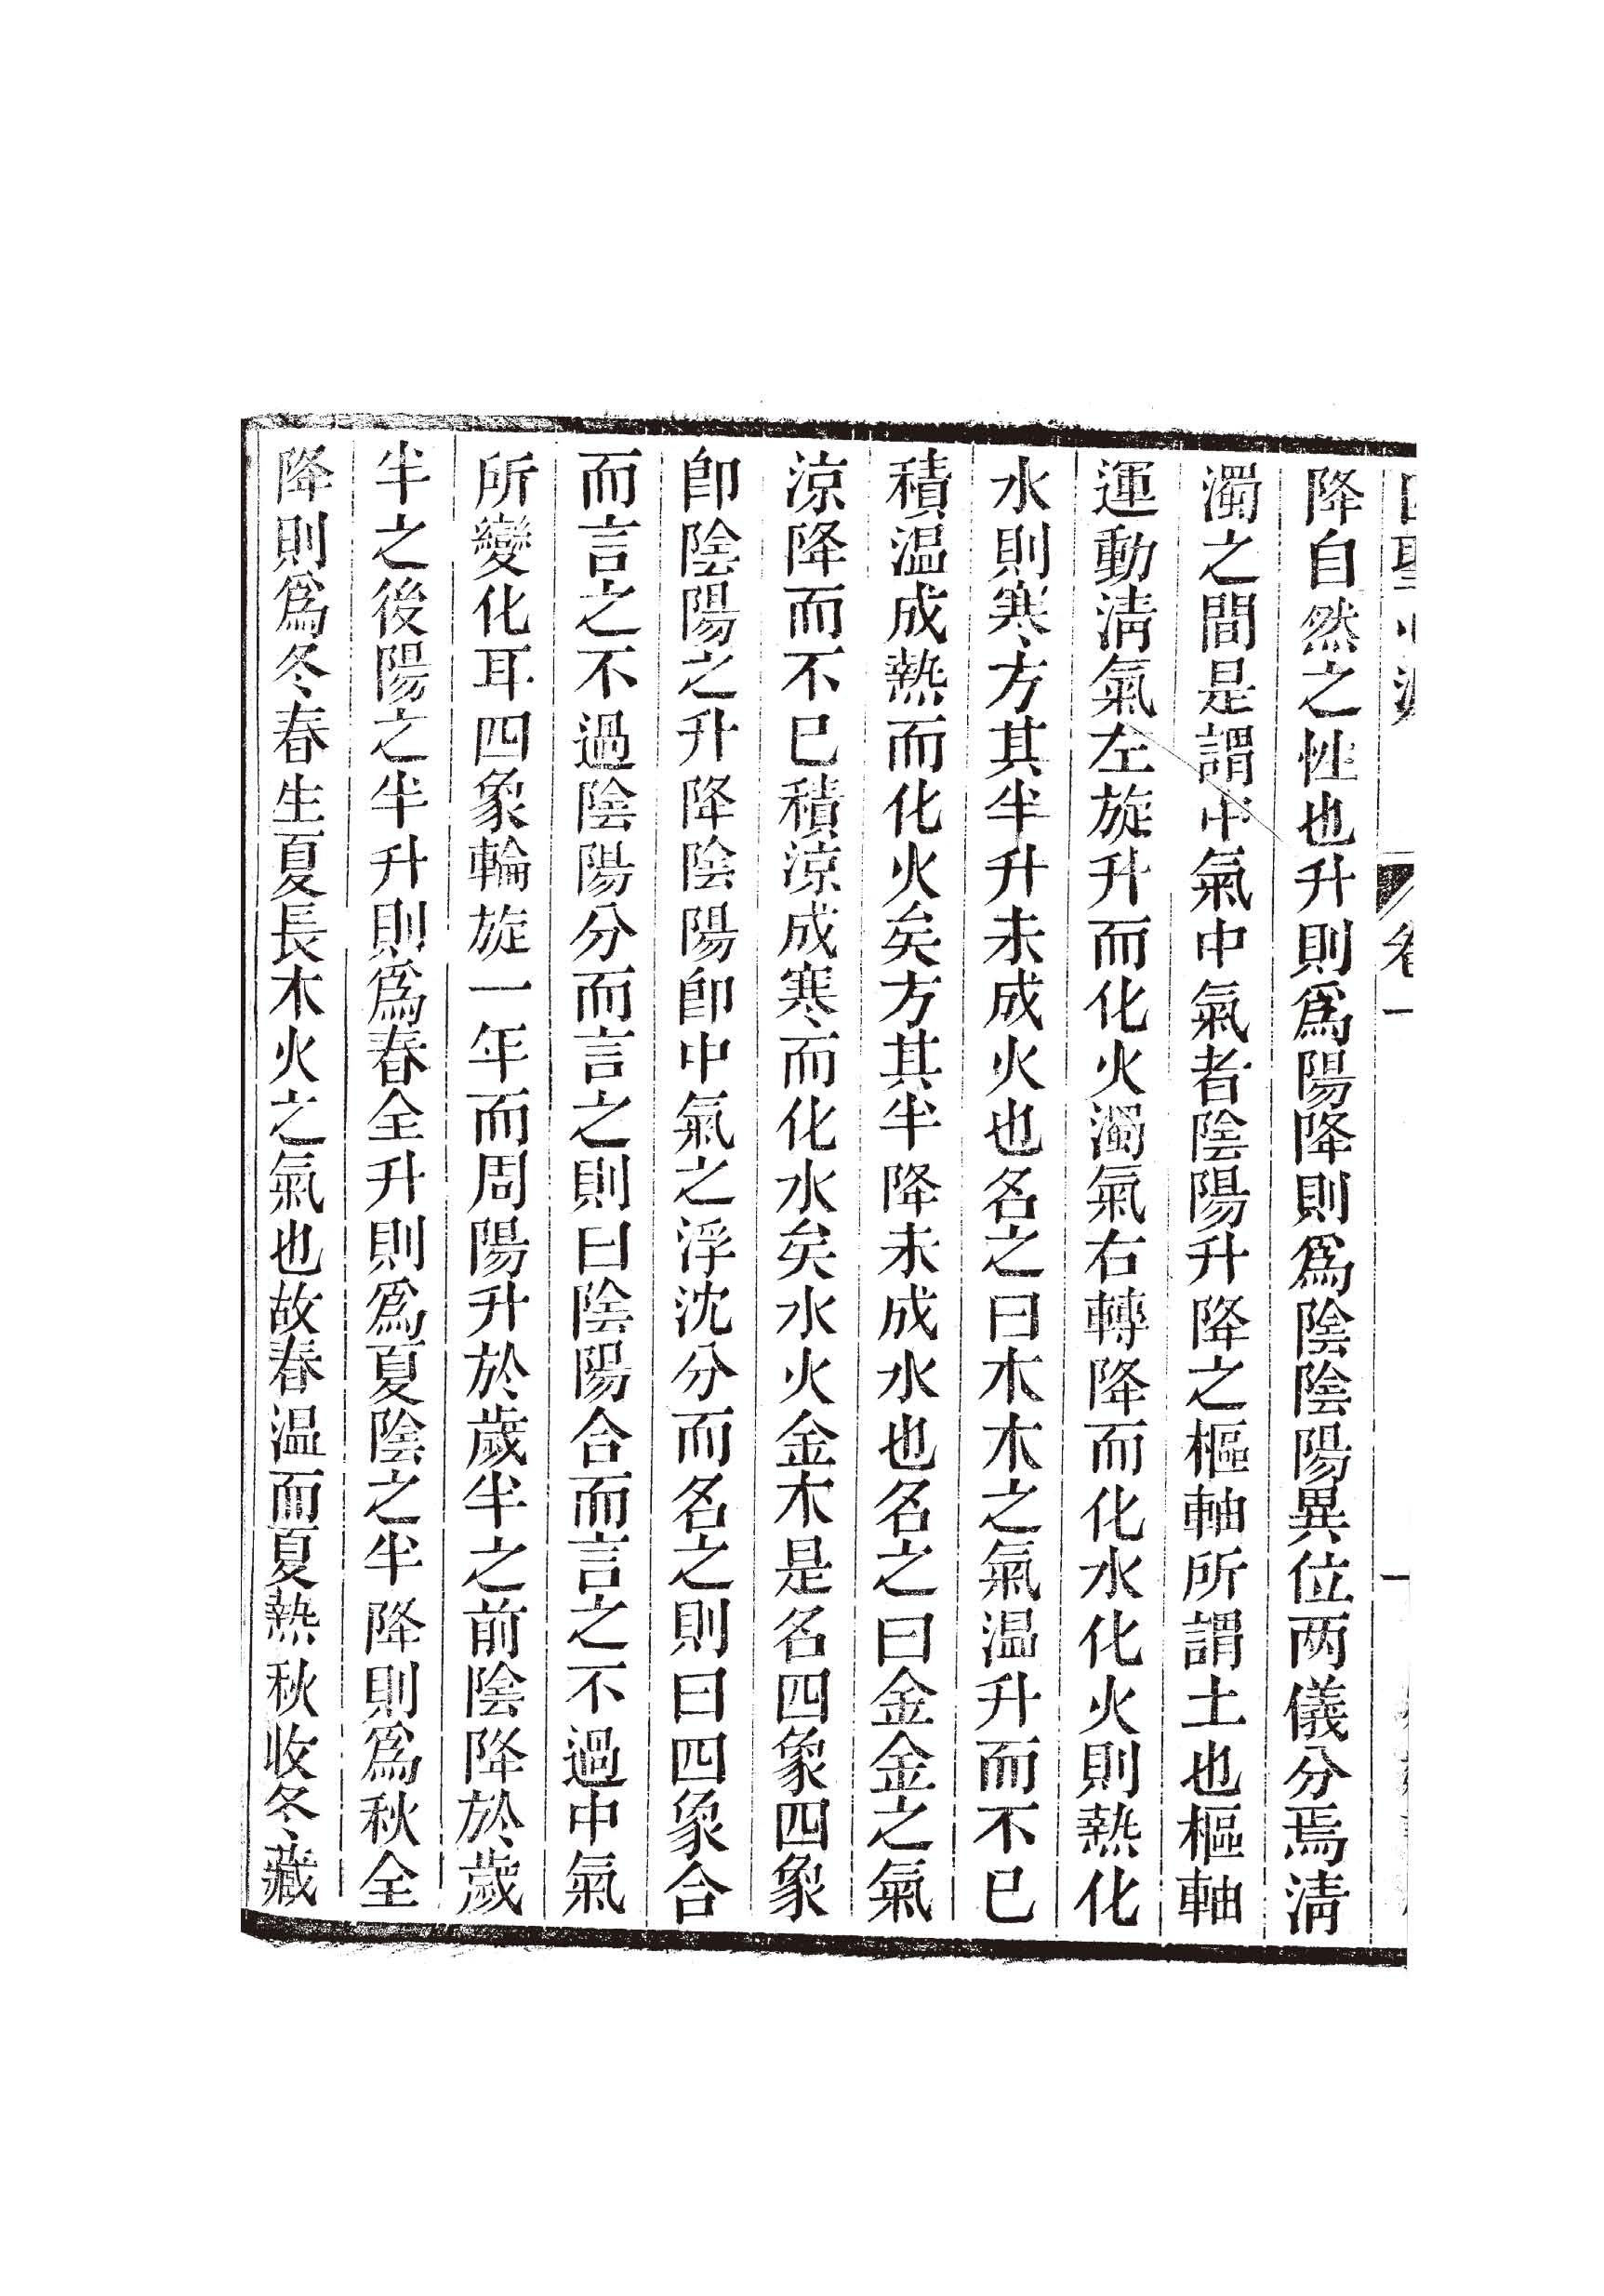 降自然之性也升則爲陽降則爲陰陰陽異位两儀分焉清
濁之間是謂中氣中氣者陰陽升降之樞軸所謂土也樞軸
運動清氣左旋升而化火濁氣右轉降而化水化火則熱化
水則寒方其半升未成火也名之曰木木之氣温升而不已
積温成熱而化火矣方其半降未成水也名之曰金金之氣
涼降而不已積涼成寒而化水矣水火金木是名四象四象
即陰陽之升降陰陽即中氣之浮沈分而名之則曰四象合
而言之不過陰陽分而言之則曰陰陽合而言之不過中氣
所變化耳四象輪旋一年而周陽升於歲半之前陰降於歲
半之後陽之半升則爲春全升則爲夏陰之半降則爲秋全
降則爲冬春生夏長木火之氣也故春温而夏熱秋收冬藏
卷一